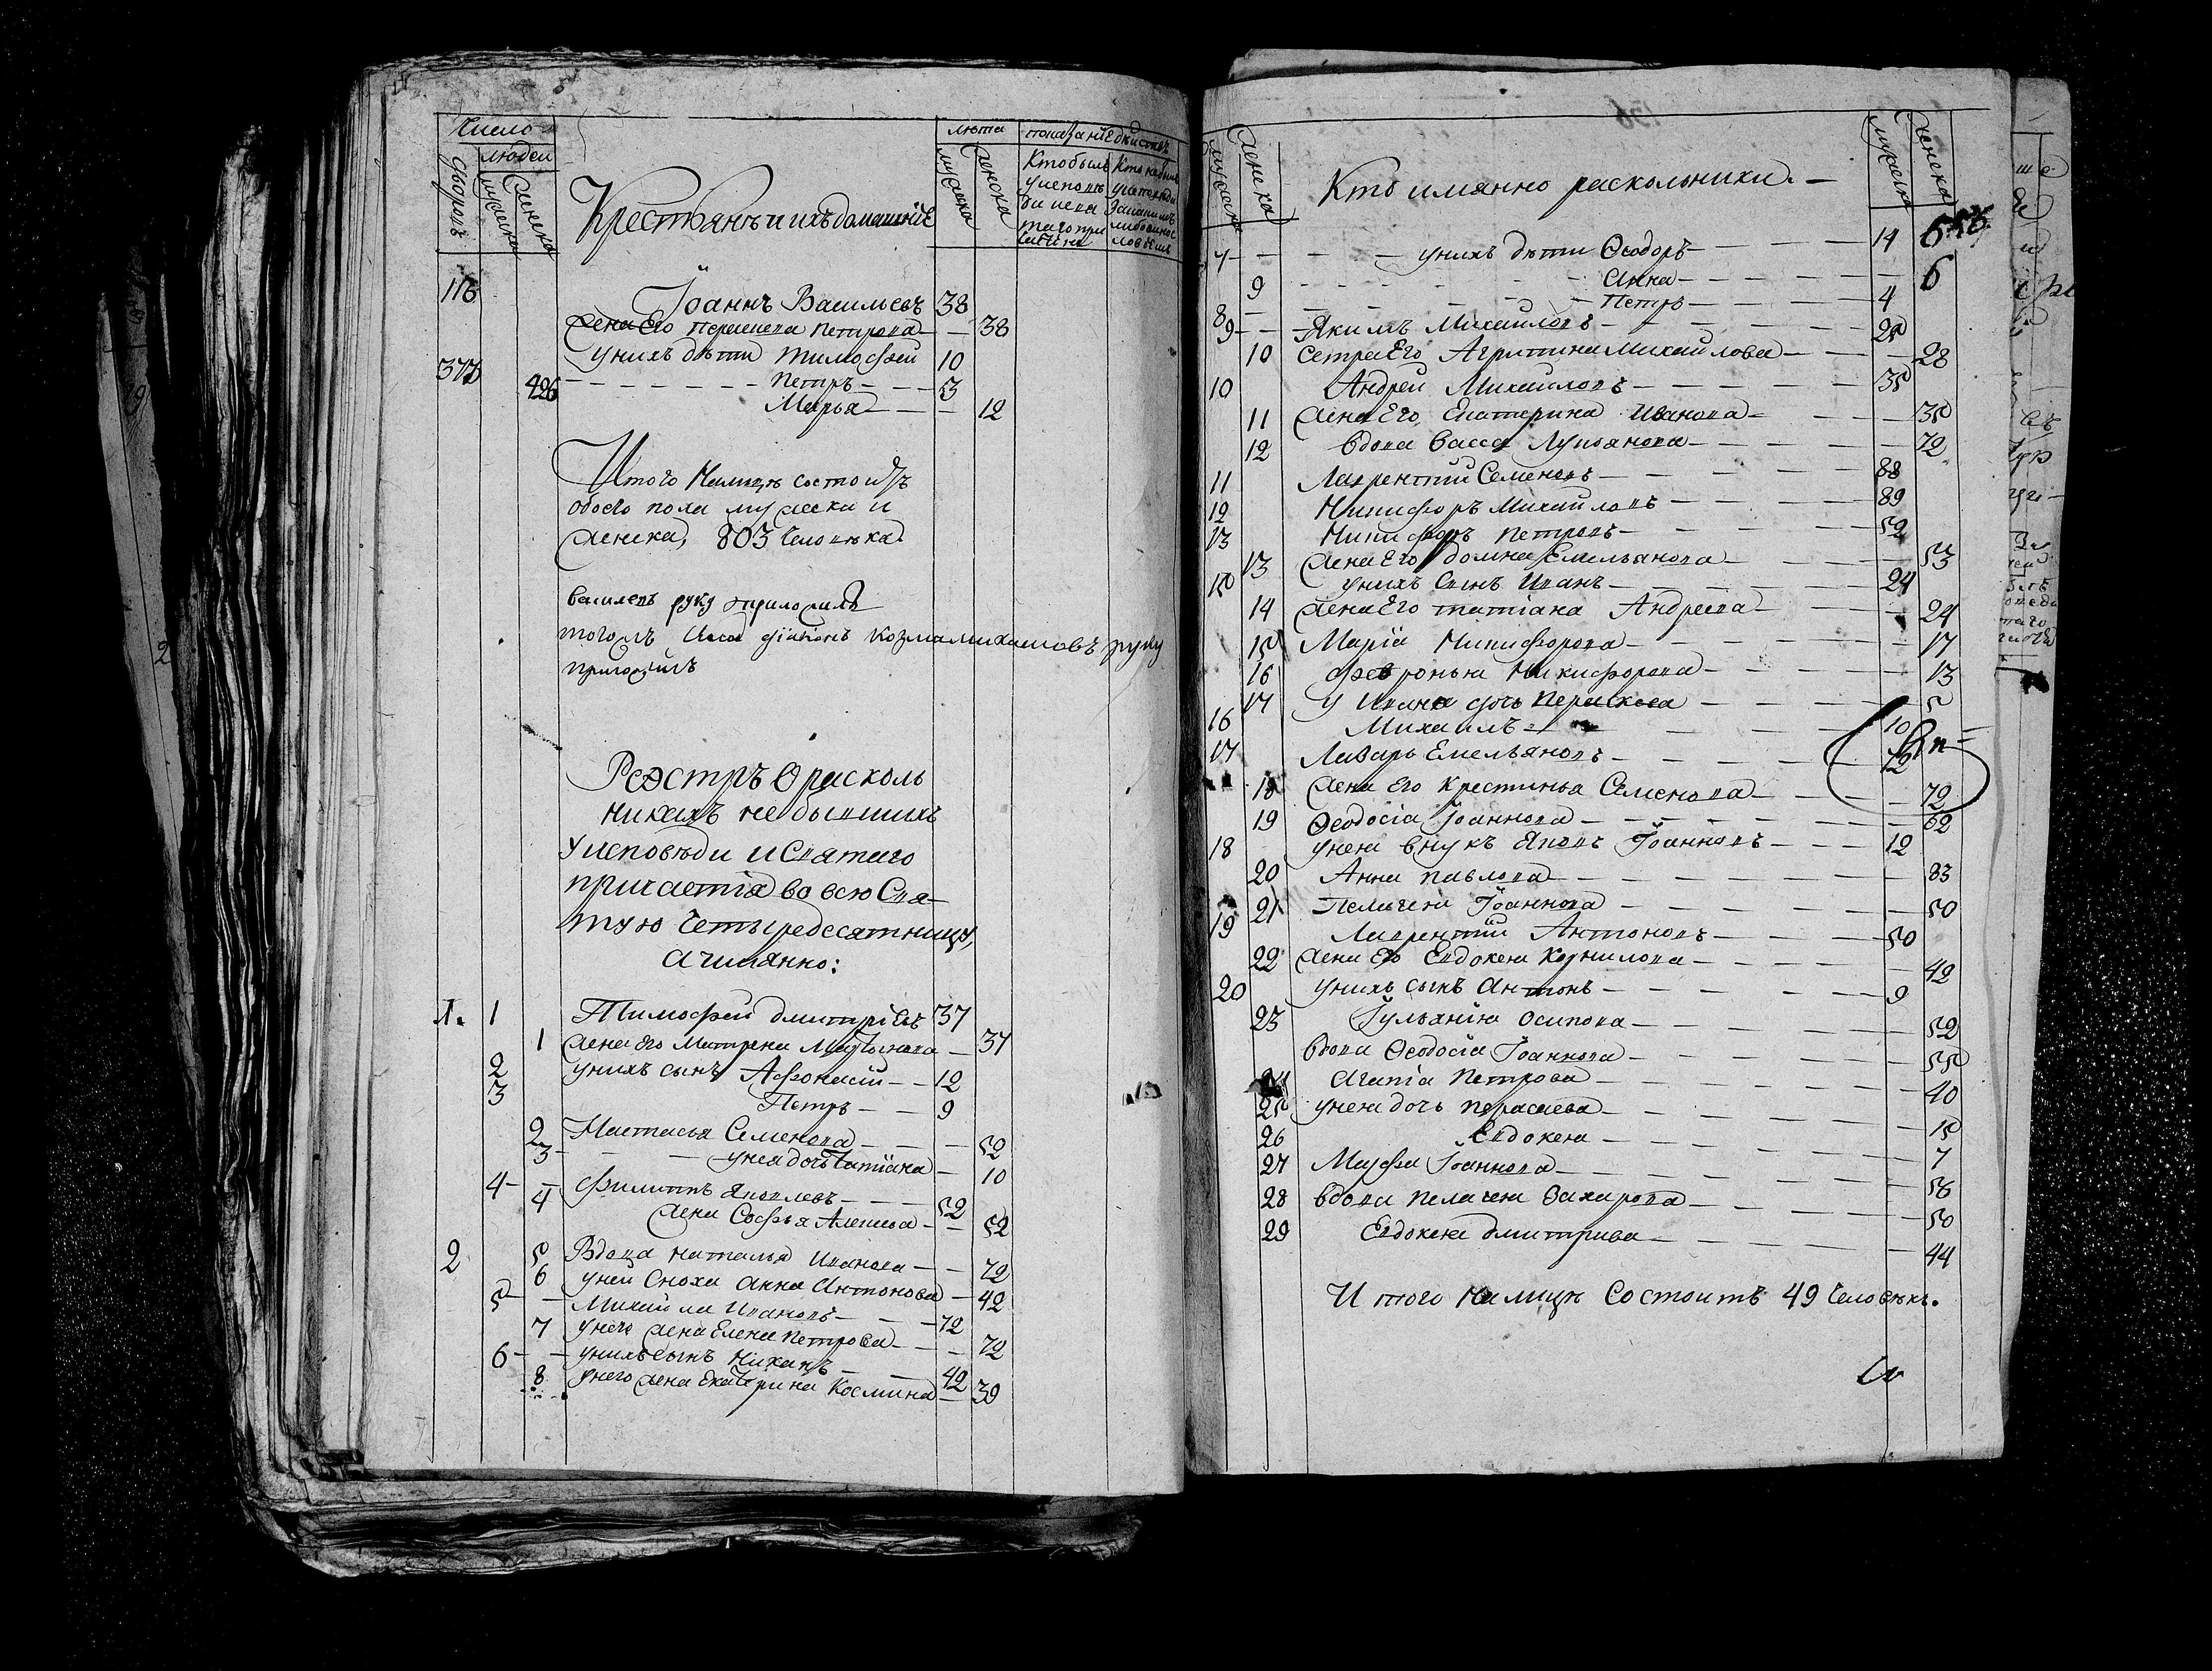 Число
людей
дворовъ
мужска
женска
Крестьянъ и ихъ домашніе
лѣта
мужска
женска
показаніе дѣйствъ
Кто былъ
у исповѣ
ди
Кто не былъ
116
Іоаннъ Васильевъ 38
жена Его Пелагея Петрова — — 38
у нихъ дѣти Тимофей 10
377
426 — — — — — — Петръ — — — 3
Марья — — — 12
Итого Налицѣ состоитъ
обоего пола мужеска и
женска, 803 человѣка.
Василевъ руку приложилъ
тогожъ села діаконъ Козма Михаиловъ руку
приложилъ
Реэстръ О расколь
никахъ не бывшихъ
у исповѣди и Святаго
причастія во всю Свя-
тую Четыредесятницу,
а имянно:
1. 1 Тимофей Дмитріевъ 37
1 жена его Матрена Мартынова — 37
2 у нихъ сынъ Афонасій — — 12
3 Петръ — — 9
2 Настасья Семенова — — — 52
3 — — — у нея дочь Татіана — 10
4 — — Филиппъ Яковлевъ — — — 52
4 жена Софья Алексѣва — — 52
2 5 Вдова Наталья Иванова — — 72
6 у ней Сноха Анна Антонова — 42
5 — — Михайла Ивановъ — — — 72
7 у него жена Елена Петрова — — — 72
6 — — у нихъ сынъ — — 42
8 у него жена Екатерина Космина — 39
мужска
женска
Кто имянно раскольники. —
мужска
женска
7 — — — — у нихъ дѣти Ѳеодоръ — — — 14
9 — — — — — — Анна — — — — — 6
8 — — — — — — Петръ — — — 4
9 — — — Якимъ Михайловъ — — — — — 25
10 сестра Его Агрипина Михайлова — — — — 28
10 Андрей Михайловъ — — — — — 35
11 жена Его, Екатерина Иванова — — — — 35
12 вдова Васса Лукоянова — — — — 72
11 Лаврентий Семеновъ — — — — — 88
12 Никифоръ Михайловъ — — — — 89
13 Никифоръ Петровъ — — — — — 52
13 жена Его Домна Емельянова — — — — 53
15 у нихъ Сынъ Иванъ — — — — — 24
14 жена Его Татіана Андреева — — — — 24
15 Марія Никифорова — — — — — 17
16 Февронья Никифорова — — — — — 13
17 у Ивана дочь Параскева — — — — 5
16 Михаилъ — — — — 10
17 Лазарь Емельяновъ — — — — — 72
18 жена Его Крестинья Семенова — — — — 72
19 Ѳеодосіа Іоаннова — — — — — — — 62
18 у нея внукъ Яковъ Іоанновъ — — — 12
20 Анна Павлова — — — — — — — 83
21 Пелагея Іоаннова — — — — — — — 50
19 Лаврентій Антоновъ — — — — — 50
22 жена Его Евдокея Корнилова — — — — — 42
20 у нихъ сынъ Антонъ — — — — — 9
23 Іульанія Осипова — — — — — — 52
вдова Ѳеодосіа Іоаннова — — — — — — — 55
24 Агапіа Петрова — — — — — — 40
25 у нея дочь Параскева — — — — — — 15
26 Евдокея — — — — — — 7
27 Марфа Іоаннова — — — — — — — 56
28 вдова Пелагея Захарова — — — — — 50
29 Евдокея Дмитрива — — — — — — 44
И того На лицѣ Состоитъ 49 человѣкъ.